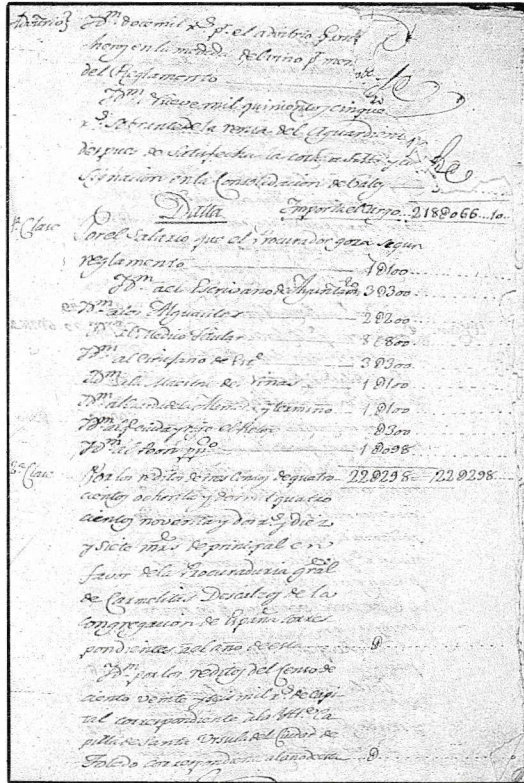 Idm. doce mil rs. pr. el adbitrio
en la medida del vino pr. menor
del Reglamento
Idm. Nueve mil quinientos y cinque
rs. Sobrante de la renta del Aguardiente
despues de Satisfecha la
signacion en la Consolidacion de Vales
Datta Importa el Cargo...218D066...10...
1ª Clase Por el Salario que el Procurador goza segun
reglamento 1D100
Idm. al Escrivano de Ayuntamto. 3D300
Idm. a los Alguaciles 2D200
Idm. al Medico Titular 8D800
Idm. al Cirujano de 3D300
Idm. a la de Viñas 1D100
Idm. al y termino 1D100
Idm. el Relox D300
Idm. al 1D098
2ª Clase Por los reditos de tres Censos de quatro 22D298 = 22D298
cientos ochenta y dos mil quatro
cientos noventa y dos rs. y diez
y siete mrs. de principal en
favor de la Procuraduria gral.
de Carmelitas Descalzos de la
Congregacion de España corres
pondientes al año de esta D
Idm. por los reditos del Censo de
ciento veinte y seis mil rs. de capi
tal correspondiente a la Ca
pilla de Santa Ursula del Ciudad de
Toledo correspondiente al año de esta D